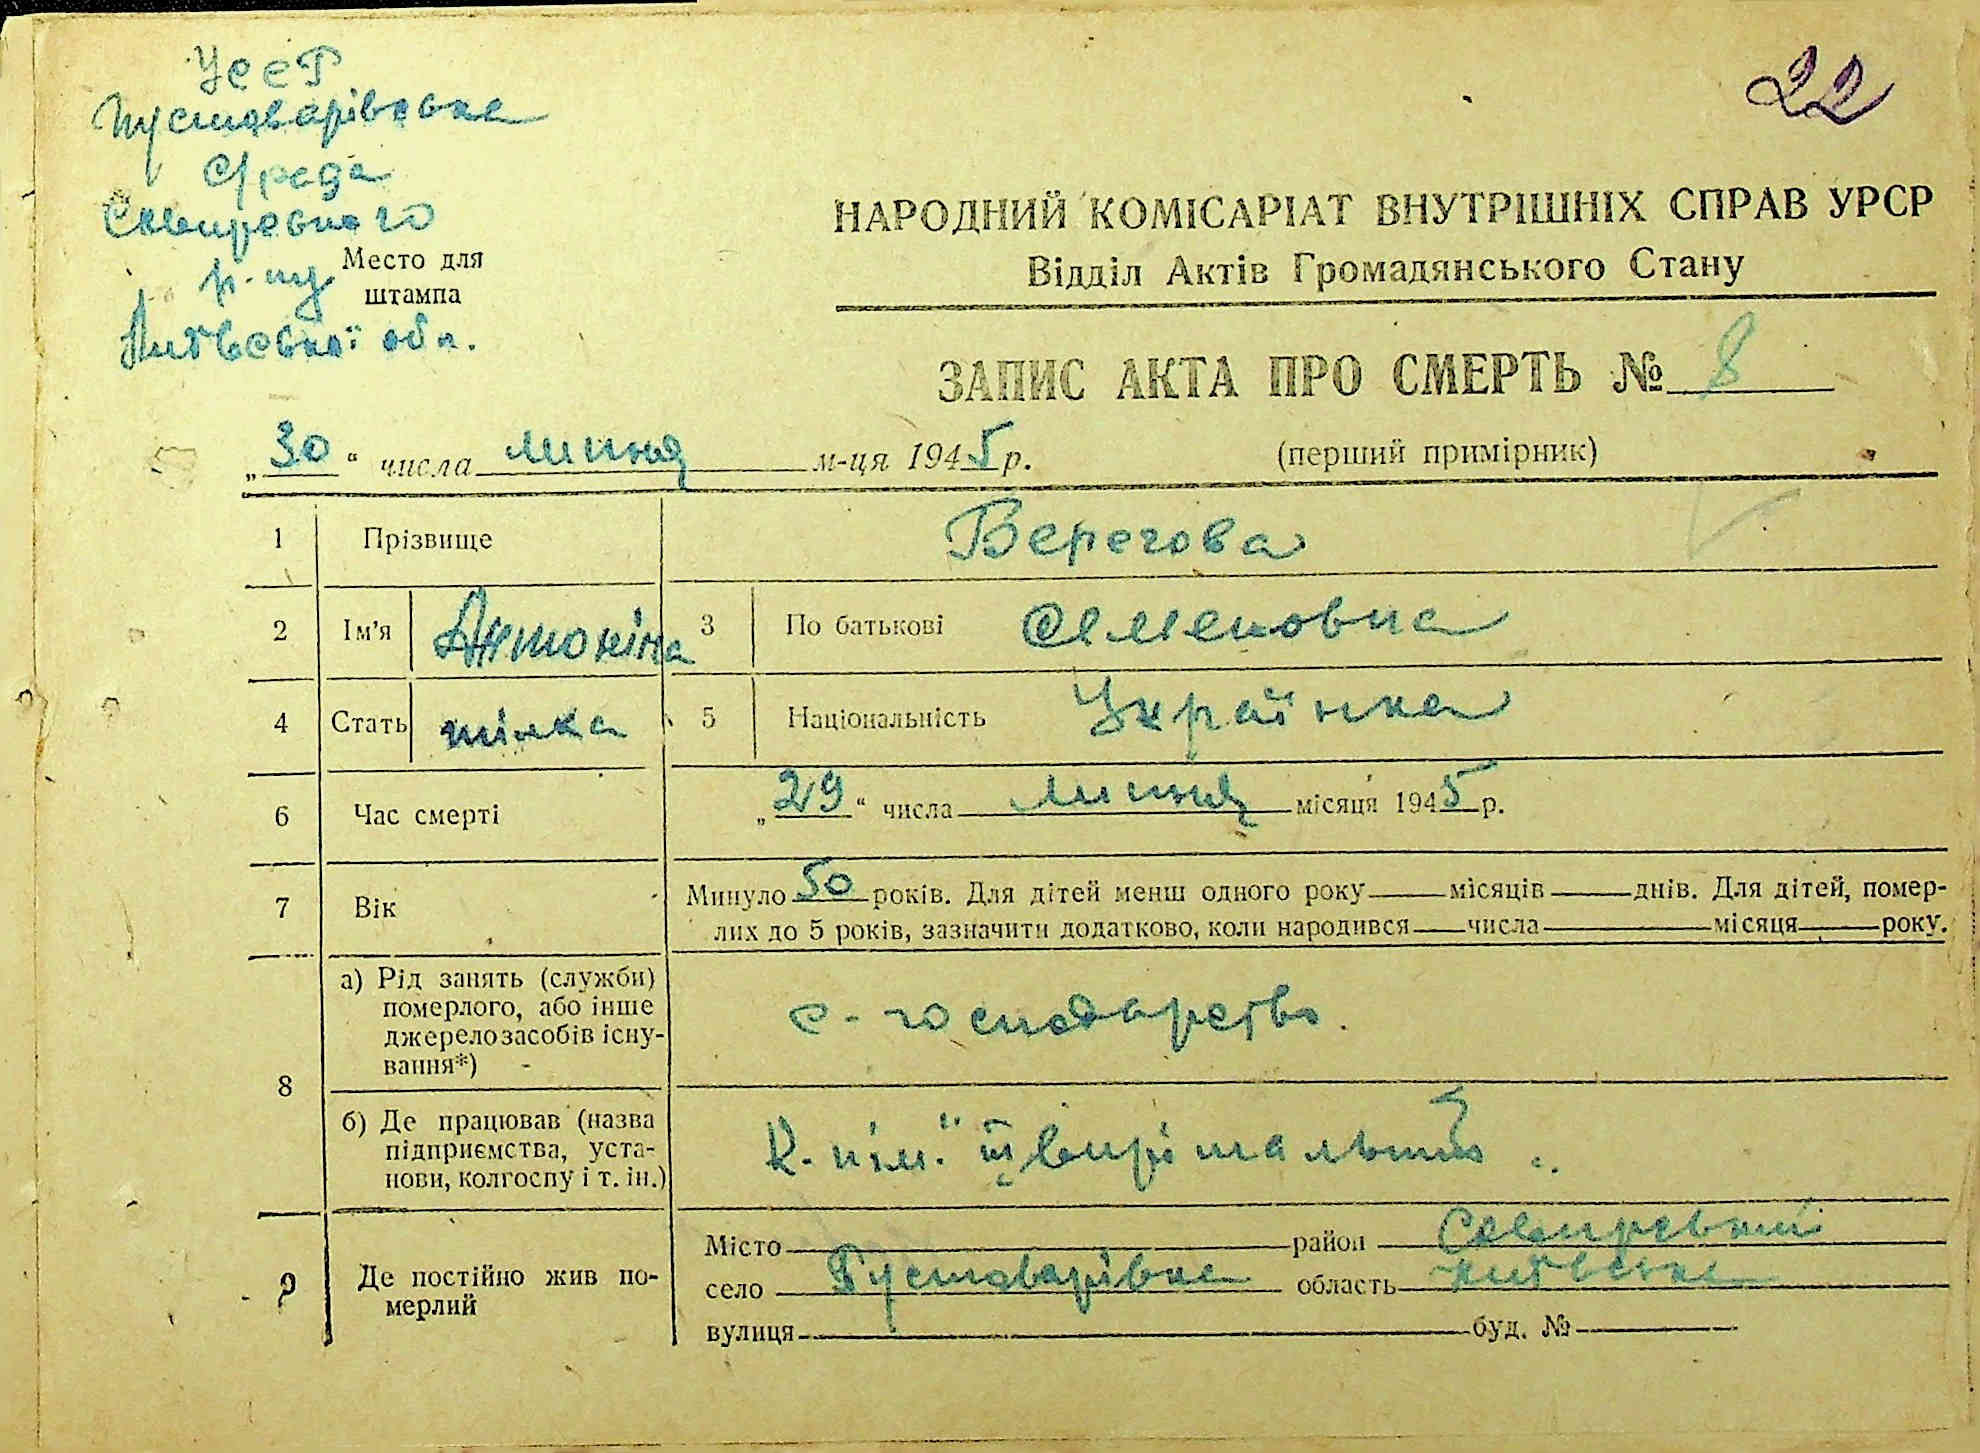 УССР
22
Пустоварівська
С/рада
Сквирського
р-ну
Київської обл.
Место для
штампа
НАРОДНИЙ КОМІСАРІАТ ВНУТРІШНІХ СПРАВ УРСР
Відділ Актів Громадянського Стану
ЗАПИС АКТА ПРО СМЕРТЬ № 8
„30“ числа липня м-ця 1945 р. (перший примірник)
1 Прізвище Берегова
2 Ім’я Антоніна 3 По батькові Семеновна
4 Стать жінка 5 Національність Українка
6 Час смерті „29“ числа липня місяця 1945 р.
7 Вік Минуло 50 років. Для дітей менш одного року місяців днів. Для дітей, помер-
лих до 5 років, зазначити додатково, коли народився числа місяця року.
8 а) Рід занять (служби)
померлого, або інше
джерело засобів існу-
вання*)
с-господарство.
б) Де працював (назва
підприємства, уста-
нови, колгоспу і т. ін.)
К. ім.
9 Де постійно жив по-
мерлий
Місто район Сквирський
село Пустоварівка область Київська
вулиця буд. №